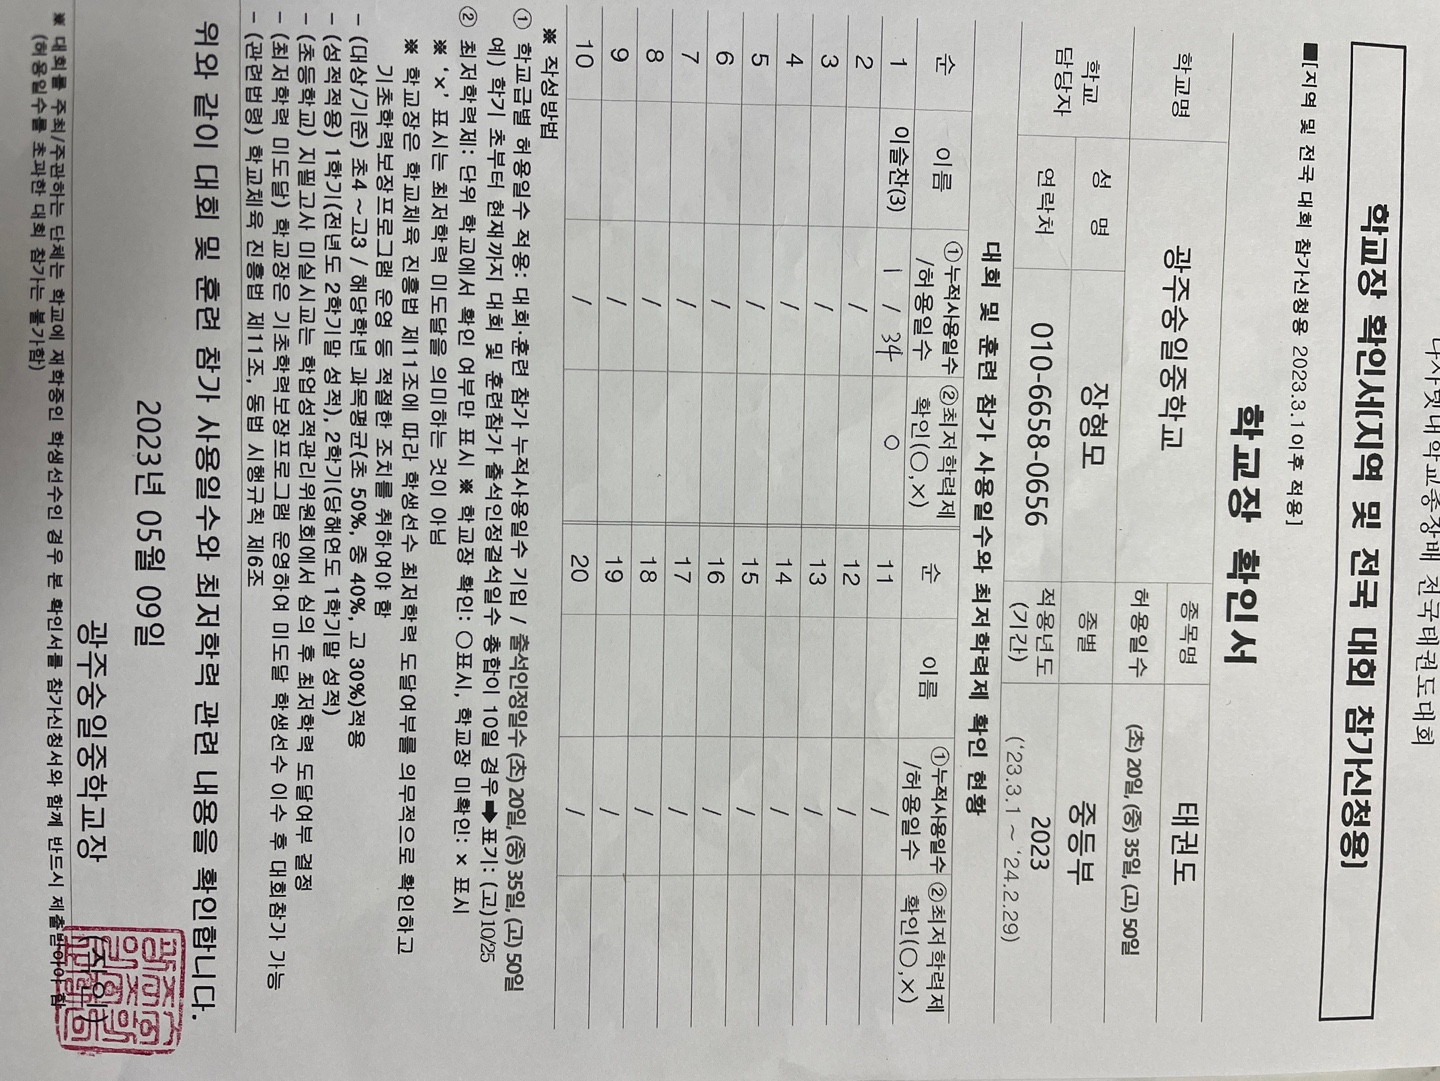 학교장 확인서[지역 및 전국 대회 참가신청용]
■[지역 및 전국 대회 참가신청용 2023.3.1이후 적용]
학교장 확인서
학교명 광주숭일중학교 종목명 태권도
허용일수 (초) 20일, (중) 35일, (고) 50일
학교 담당자 성 명 장형모 종별 중등부
연락처 010-6658-0656 적용년도 (기간) 2023 ('23.3.1 ~ '24.2.29)
대회 및 훈련 참가 사용일수와 최저학력제 확인 현황
순 이름 ①누적사용일수 /허용일수 ②최저학력제 확인(○,×) 순 이름 ①누적사용일수 /허용일수 ②최저학력제 확인(○,×)
1 이슬찬(3) 1 / 34 ○ 11 /
2 / 12 /
3 / 13 /
4 / 14 /
5 / 15 /
6 / 16 /
7 / 17 /
8 / 18 /
9 / 19 /
10 / 20 /
※ 작성방법
① 학교급별 허용일수 적용: 대회·훈련 참가 누적사용일수 기입 / 출석인정일수 (초) 20일, (중) 35일, (고) 50일
예) 학기 초부터 현재까지 대회 및 훈련참가 출석인정결석일수 총합이 10일 경우 ➡ 표기: (고)10/25
② 최저학력제: 단위 학교에서 확인 여부만 표시 ※ 학교장 확인: ○표시, 학교장 미확인: × 표시
※ '×' 표시는 최저학력 미도달을 의미하는 것이 아님
※ 학교장은 학교체육 진흥법 제11조에 따라 학생선수 최저학력 도달여부를 의무적으로 확인하고
기초학력보장프로그램 운영 등 적절한 조치를 취하여야 함
- (대상/기준) 초4 ~고3 / 해당학년 과목평균(초 50%, 중 40%, 고 30%)적용
- (성적적용) 1학기(전년도 2학기말 성적), 2학기(당해연도 1학기말 성적)
- (초등학교) 지필고사 미실시교는 학업성적관리위원회에서 심의 후 최저학력 도달여부 결정
- (최저학력 미도달) 학교장은 기초학력보장프로그램 운영하여 미도달 학생선수 이수 후 대회참가 가능
- (관련법령) 학교체육 진흥법 제11조, 동법 시행규칙 제6조
위와 같이 대회 및 훈련 참가 사용일수와 최저학력 관련 내용을 확인합니다.
2023년 05월 09일
광주숭일중학교장 (직인)
※ 대회를 주최/주관하는 단체는 학교에 재학중인 학생선수인 경우 본 확인서를 참가신청서와 함께 반드시 제출받아야 함
(허용일수를 초과한 대회 참가는 불가함)